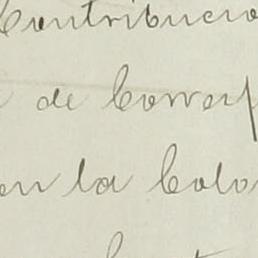 Contribucio
de Corresp
en la Colo